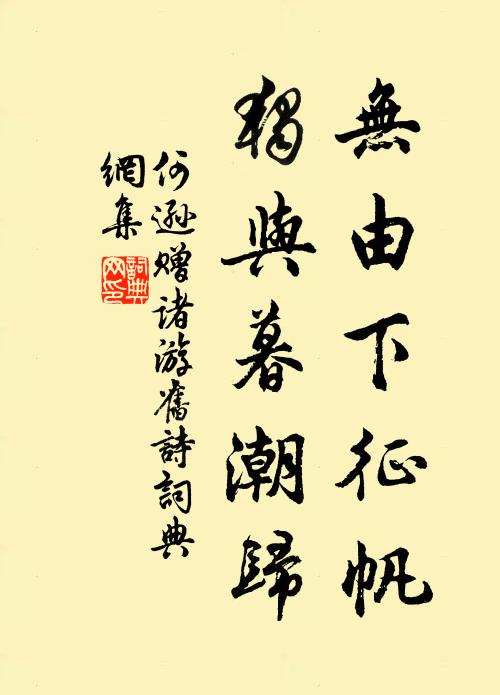 無由下征帆
獨與暮潮歸
何遜贈諸游舊詩詞典
網集
詞典
网印